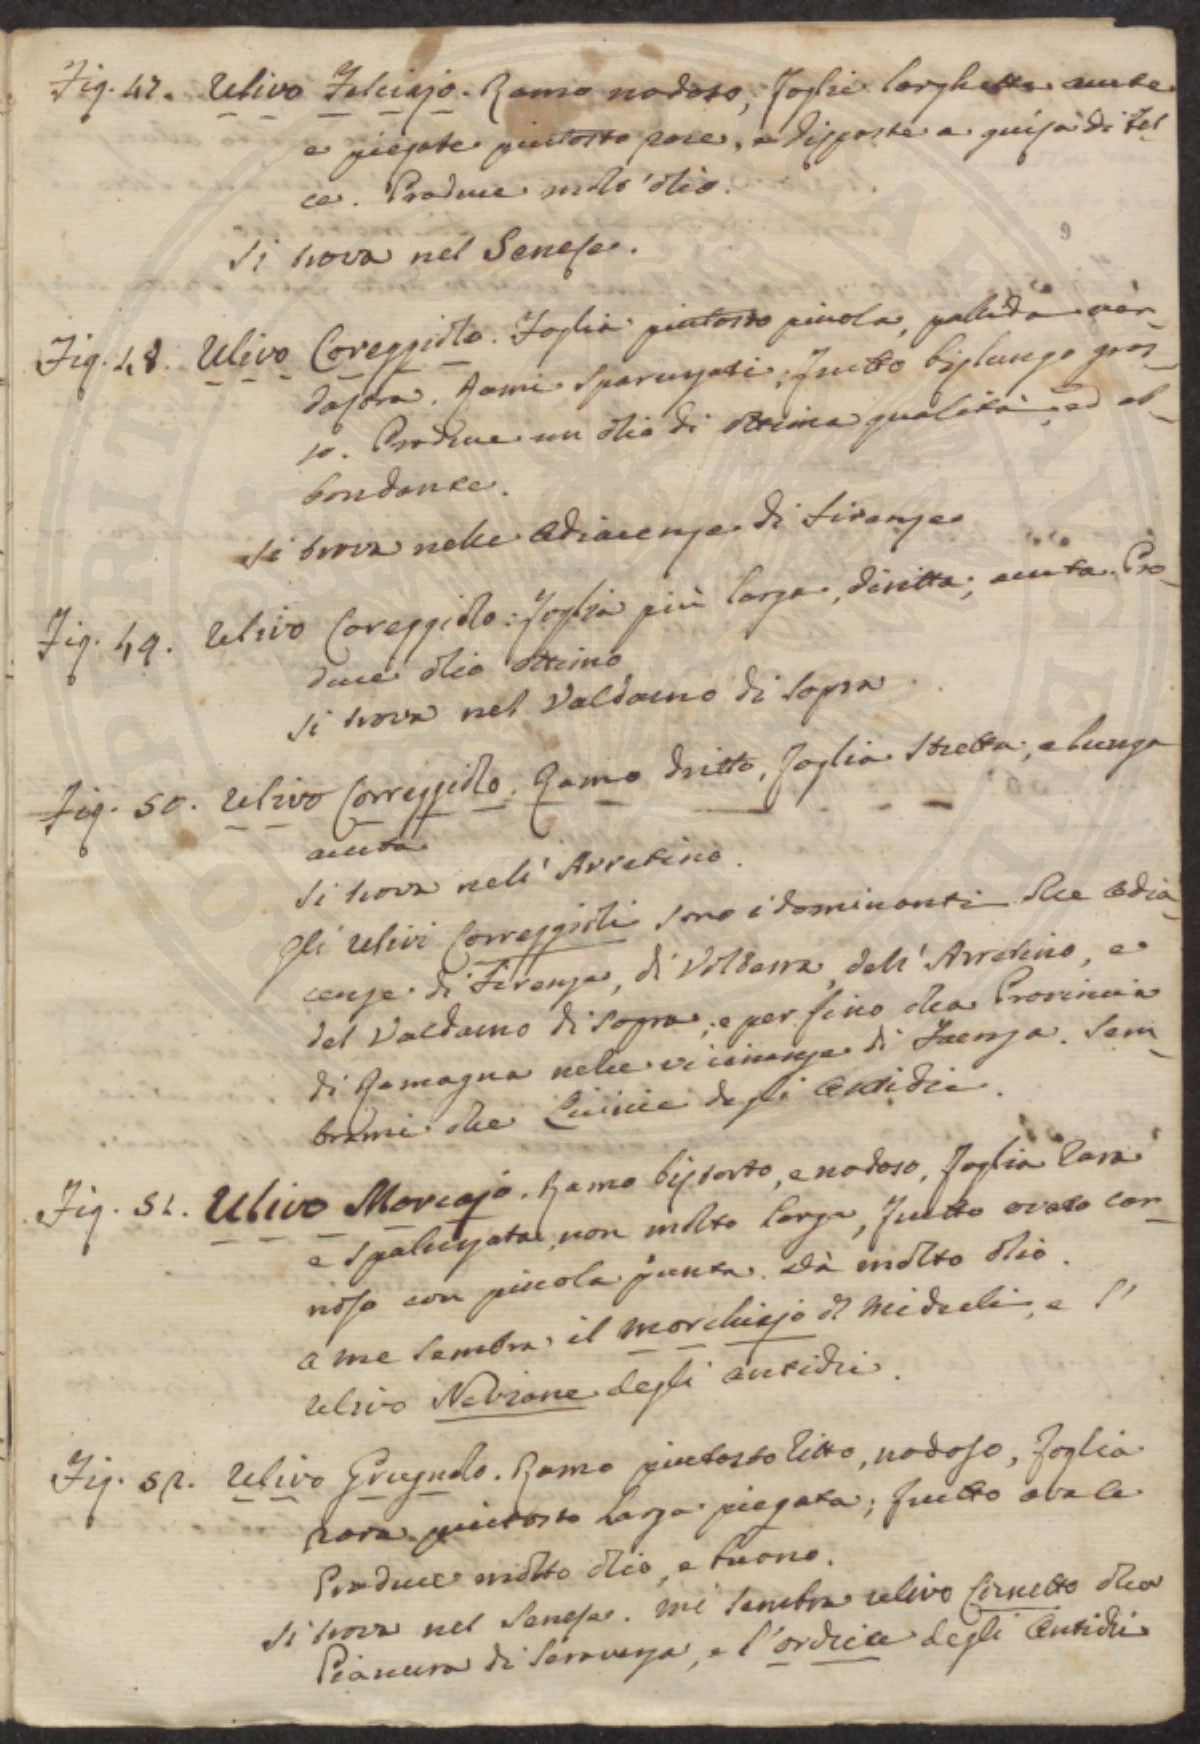 Fig. 47. Ulivo Felciajo. Ramo nodoso, foglie larghette acute
e piegate piutosto rare, e disposte a guisa di Fel
ce. Produce molt'olio.
Si trova nel Senese.
Fig. 48. Ulivo Coreggiolo. Foglia piutosto picola, pallida ver-
dastra. Rami sparuyati; frutto bislungo gros-
so. Produce un olio di ottima qualità, ed ab-
bondante.
Si trova nelle adiacenze di Firenze
Fig. 49. Ulivo Coreggiolo: foglia più larga, diritta, acuta. Pro-
duce olio ottimo
Si trova nel Valdarno di Sopra
Fig. 50. Ulivo Correggiolo. Ramo dritto, foglia stretta, e lunga
acuta
Si trova nell'Arretino.
Gli Ulivi Correggioli sono i dominanti alle adia-
cenze di Firenze, di Volterra, dell'Arretino, e
del Valdarno di Sopra, e per fino alla Provincia
di Romagna nelle vicinanze di Faenza. Sem-
brami che Licinie degli antichi.
Fig. 51. Ulivo Morcajo. Ramo bistorto, e nodoso, foglia rara
e non molto larga, frutto ovato car-
noso con picola punta. Dà molto olio.
a me sembra il morchiajo di Micheli, e l'
Ulivo Neviane degli antichi.
Fig. 52. Ulivo Grugnolo. Ramo piutosto litto, nodoso, foglia
rara piutosto larga piegata; frutto ovale
Produce molto olio, e buono.
Si trova nel Senese. mi sembra ulivo Cornetto alla
Pianura di Seraveza, e l'ordicea degli antichi